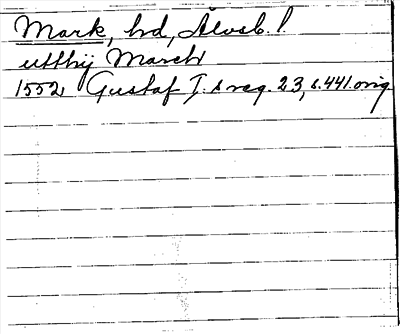 Mark, hd, Älvsb. l.
utthij March
1552 Gustaf I. s reg. 23, s. 441. orig